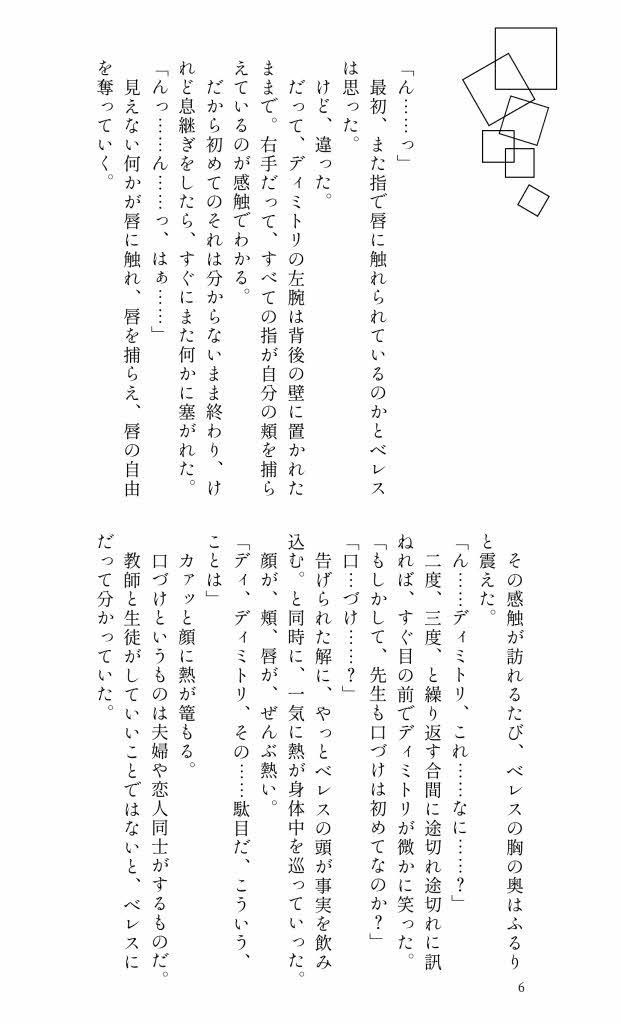 「ん……っ」
最初、また指で唇に触れられているのかとベレス
は思った。
けど、違った。
だって、ディミトリの左腕は背後の壁に置かれた
ままで。右手だって、すべての指が自分の頬を捕ら
えているのが感触でわかる。
だから初めてのそれは分からないまま終わり、け
れど息継ぎをしたら、すぐにまた何かに塞がれた。
「んっ……ん……っ、はぁ……」
見えない何かが唇に触れ、唇を捕らえ、唇の自由
を奪っていく。
その感触が訪れるたび、ベレスの胸の奥はふるり
と震えた。
「ん……ディミトリ、これ……なに……？」
二度、三度、と繰り返す合間に途切れ途切れに訊
ねれば、すぐ目の前でディミトリが微かに笑った。
「もしかして、先生も口づけは初めてなのか？」
「口…づけ……？」
告げられた解に、やっとベレスの頭が事実を飲み
込む。と同時に、一気に熱が身体中を巡っていった。
顔が、頬、唇が、ぜんぶ熱い。
「ディ、ディミトリ、その……駄目だ、こういう、
ことは」
カァッと顔に熱が篭もる。
口づけというものは夫婦や恋人同士がするものだ。
教師と生徒がしていいことではないと、ベレスに
だって分かっていた。
6